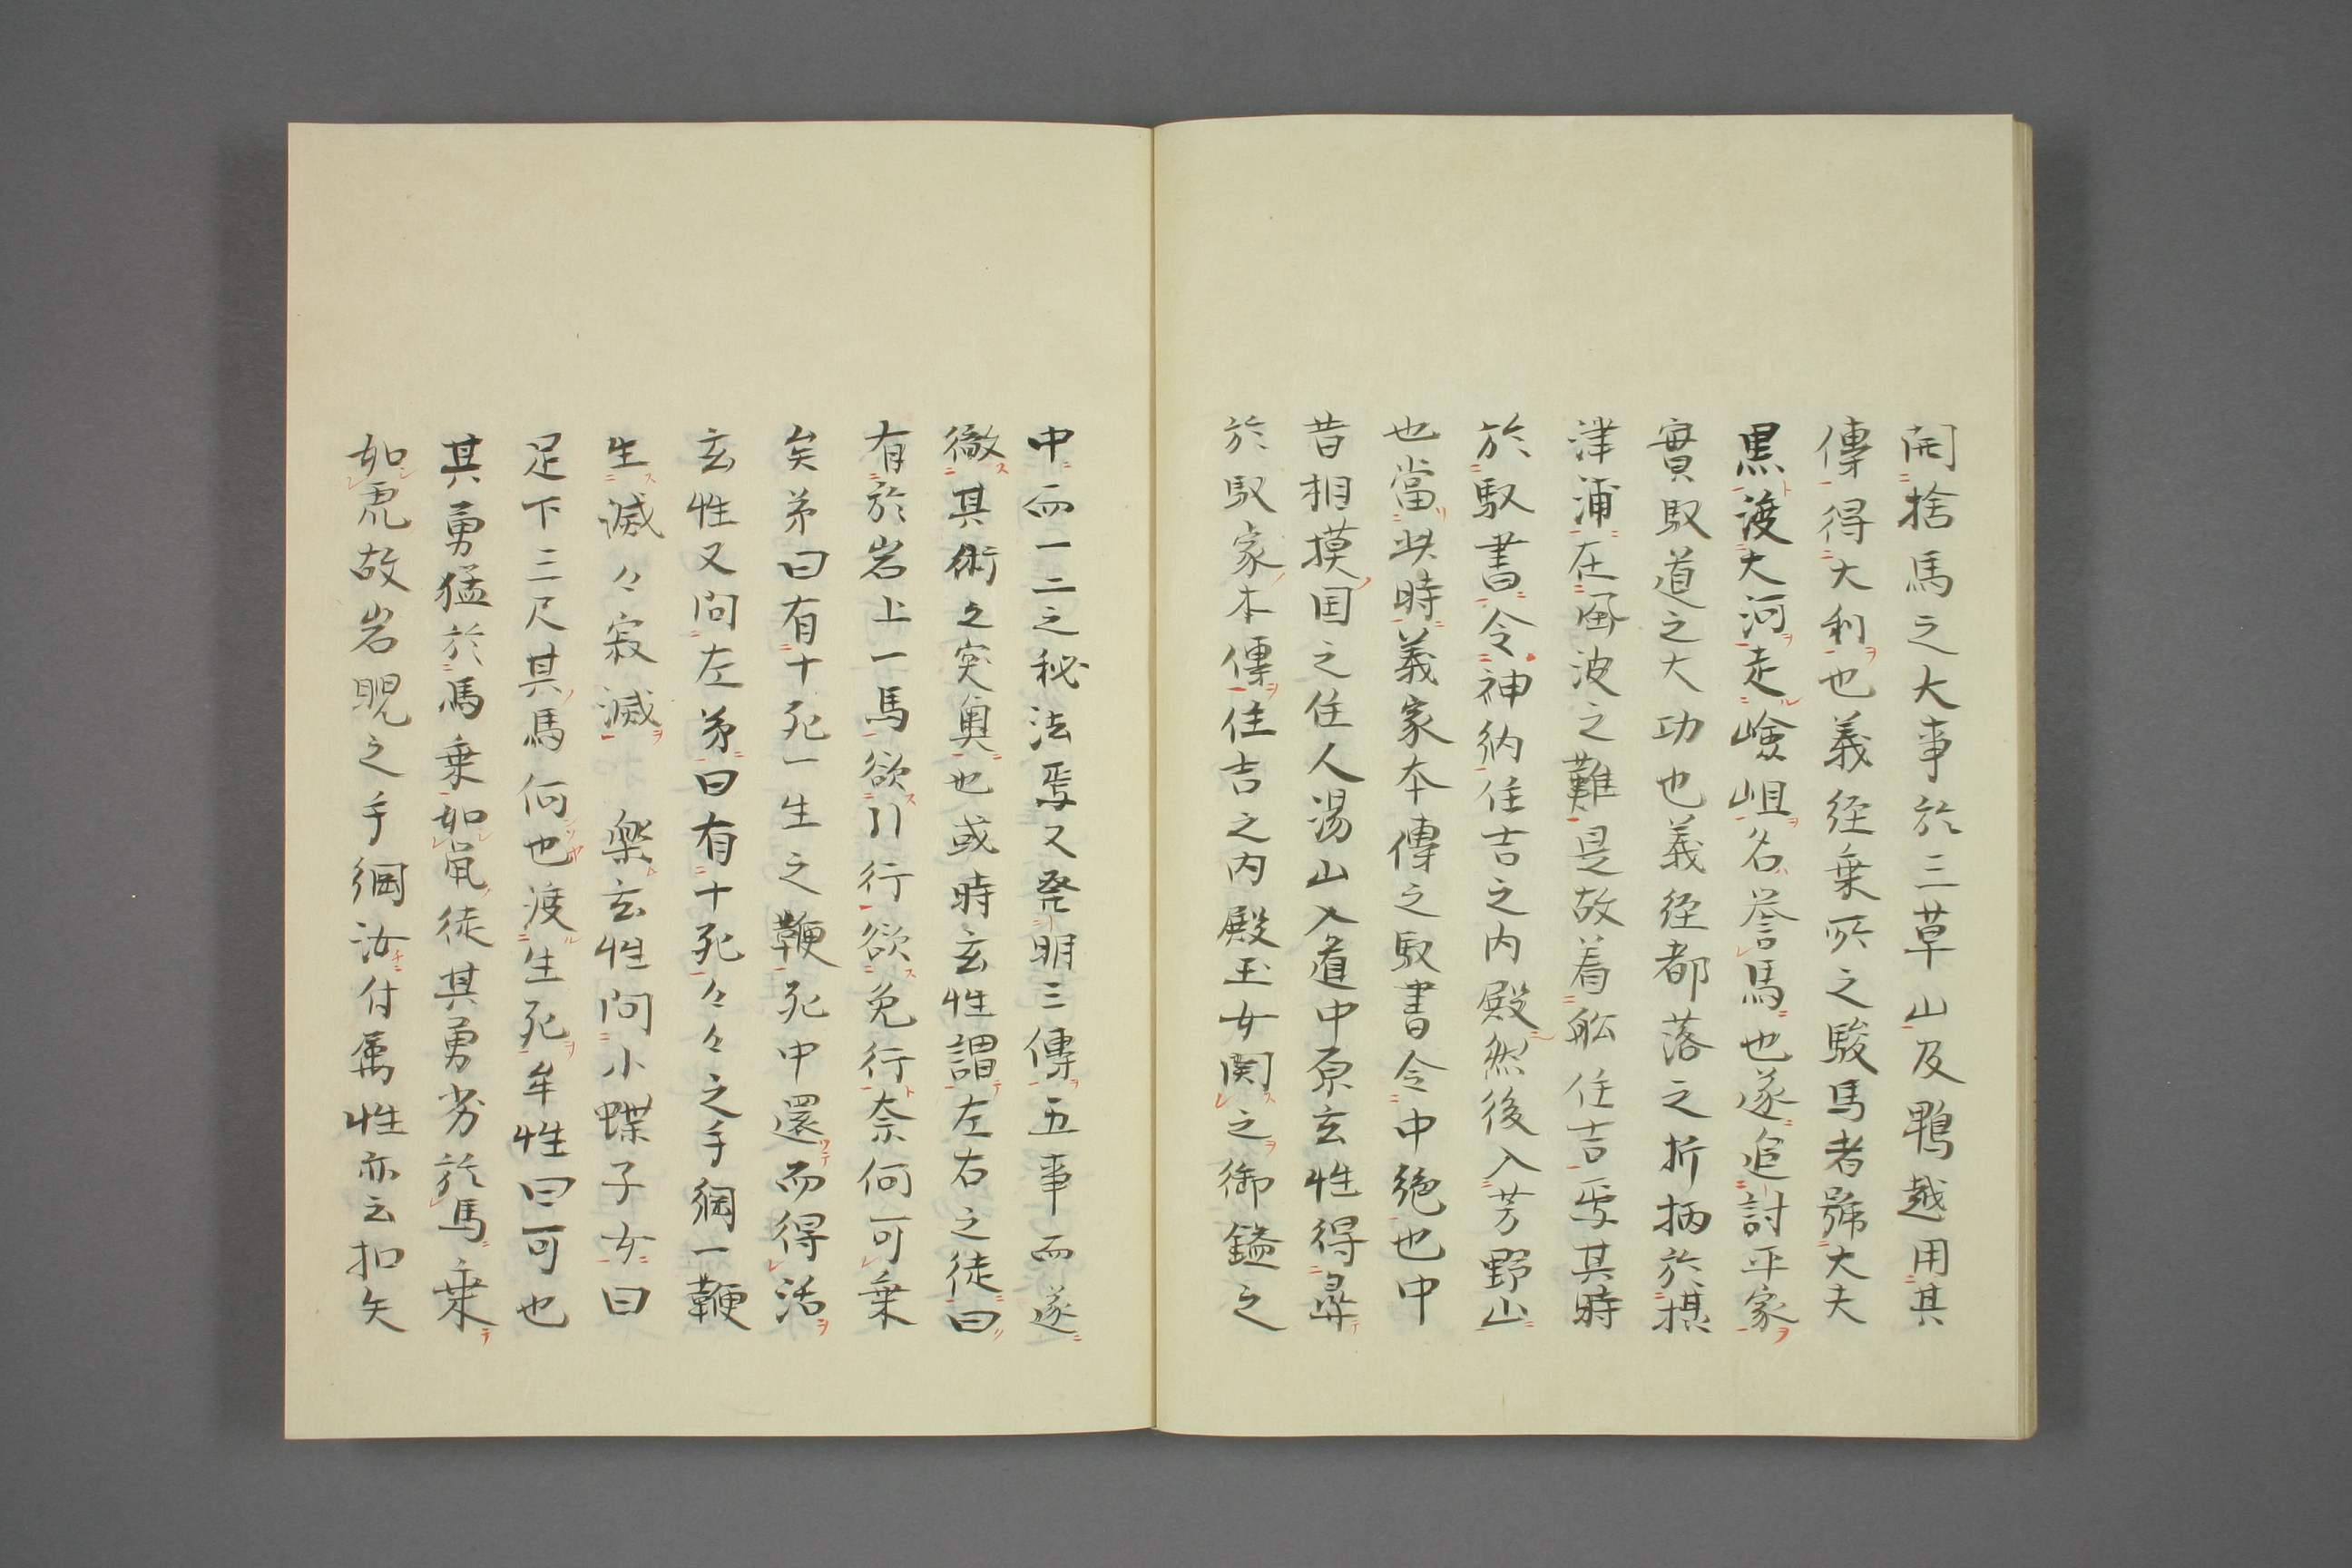 開捨馬之大事於三草山及鵯越用其
傳得大利也義径乗所之駿馬者號大夫
黒渡大河走嶮岨名誉馬也遂追討平家
實馭道之大功也義径都落之折柄於摂
津浦在風波之難是故着舩住吉焉其時
於馭書令神納住吉之内殿然後入芳野山
也當此時義家本傳之馭書令中絶也中
昔相摸国之住人湯山入道中原玄性得尋
於馭家本傳住吉之内殿玉女関之御鎰之
中而一二之秘法焉又発明三傳五事而遂
徹其術之突奥也或時玄性謂左右之徒曰
有於岩上一馬欲引行欲免行奈何可乗
矣弟曰有十死一生之鞭死中還而得活
玄性又問左弟曰有十死々々之手綱一鞭
生滅々寂滅 楽玄性問小蝶子女曰
足下三尺其馬何也渡生死牟性曰可也
其勇猛於馬乗如鼠徒其勇劣於馬乗
如虎故岩睨之手綱汝付属性亦云扣矢